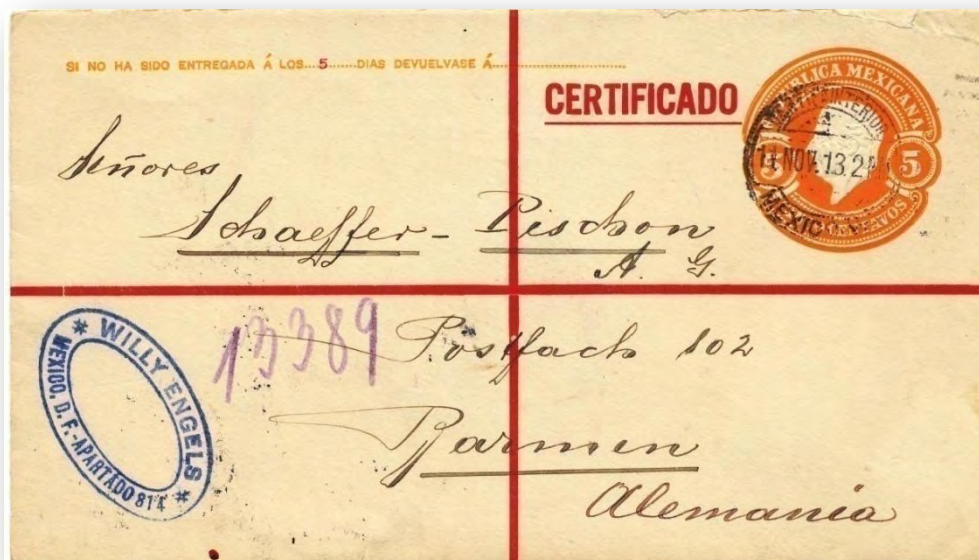 SI NO HA SIDO ENTREGADA Á LOS...5......DIAS DEVUELVASE Á..............................
CERTIFICADO
REPUBLICA MEXICANA
5 5
CENTAVOS
INTERIOR
14 NOV. 13. 2
MEXICO
Señores
Schaeffer-Pischon
A. G.
13389
Postfach 102
Barmen
Alemania
* WILLY ENGELS *
MEXICO, D. F.-APARTADO 814